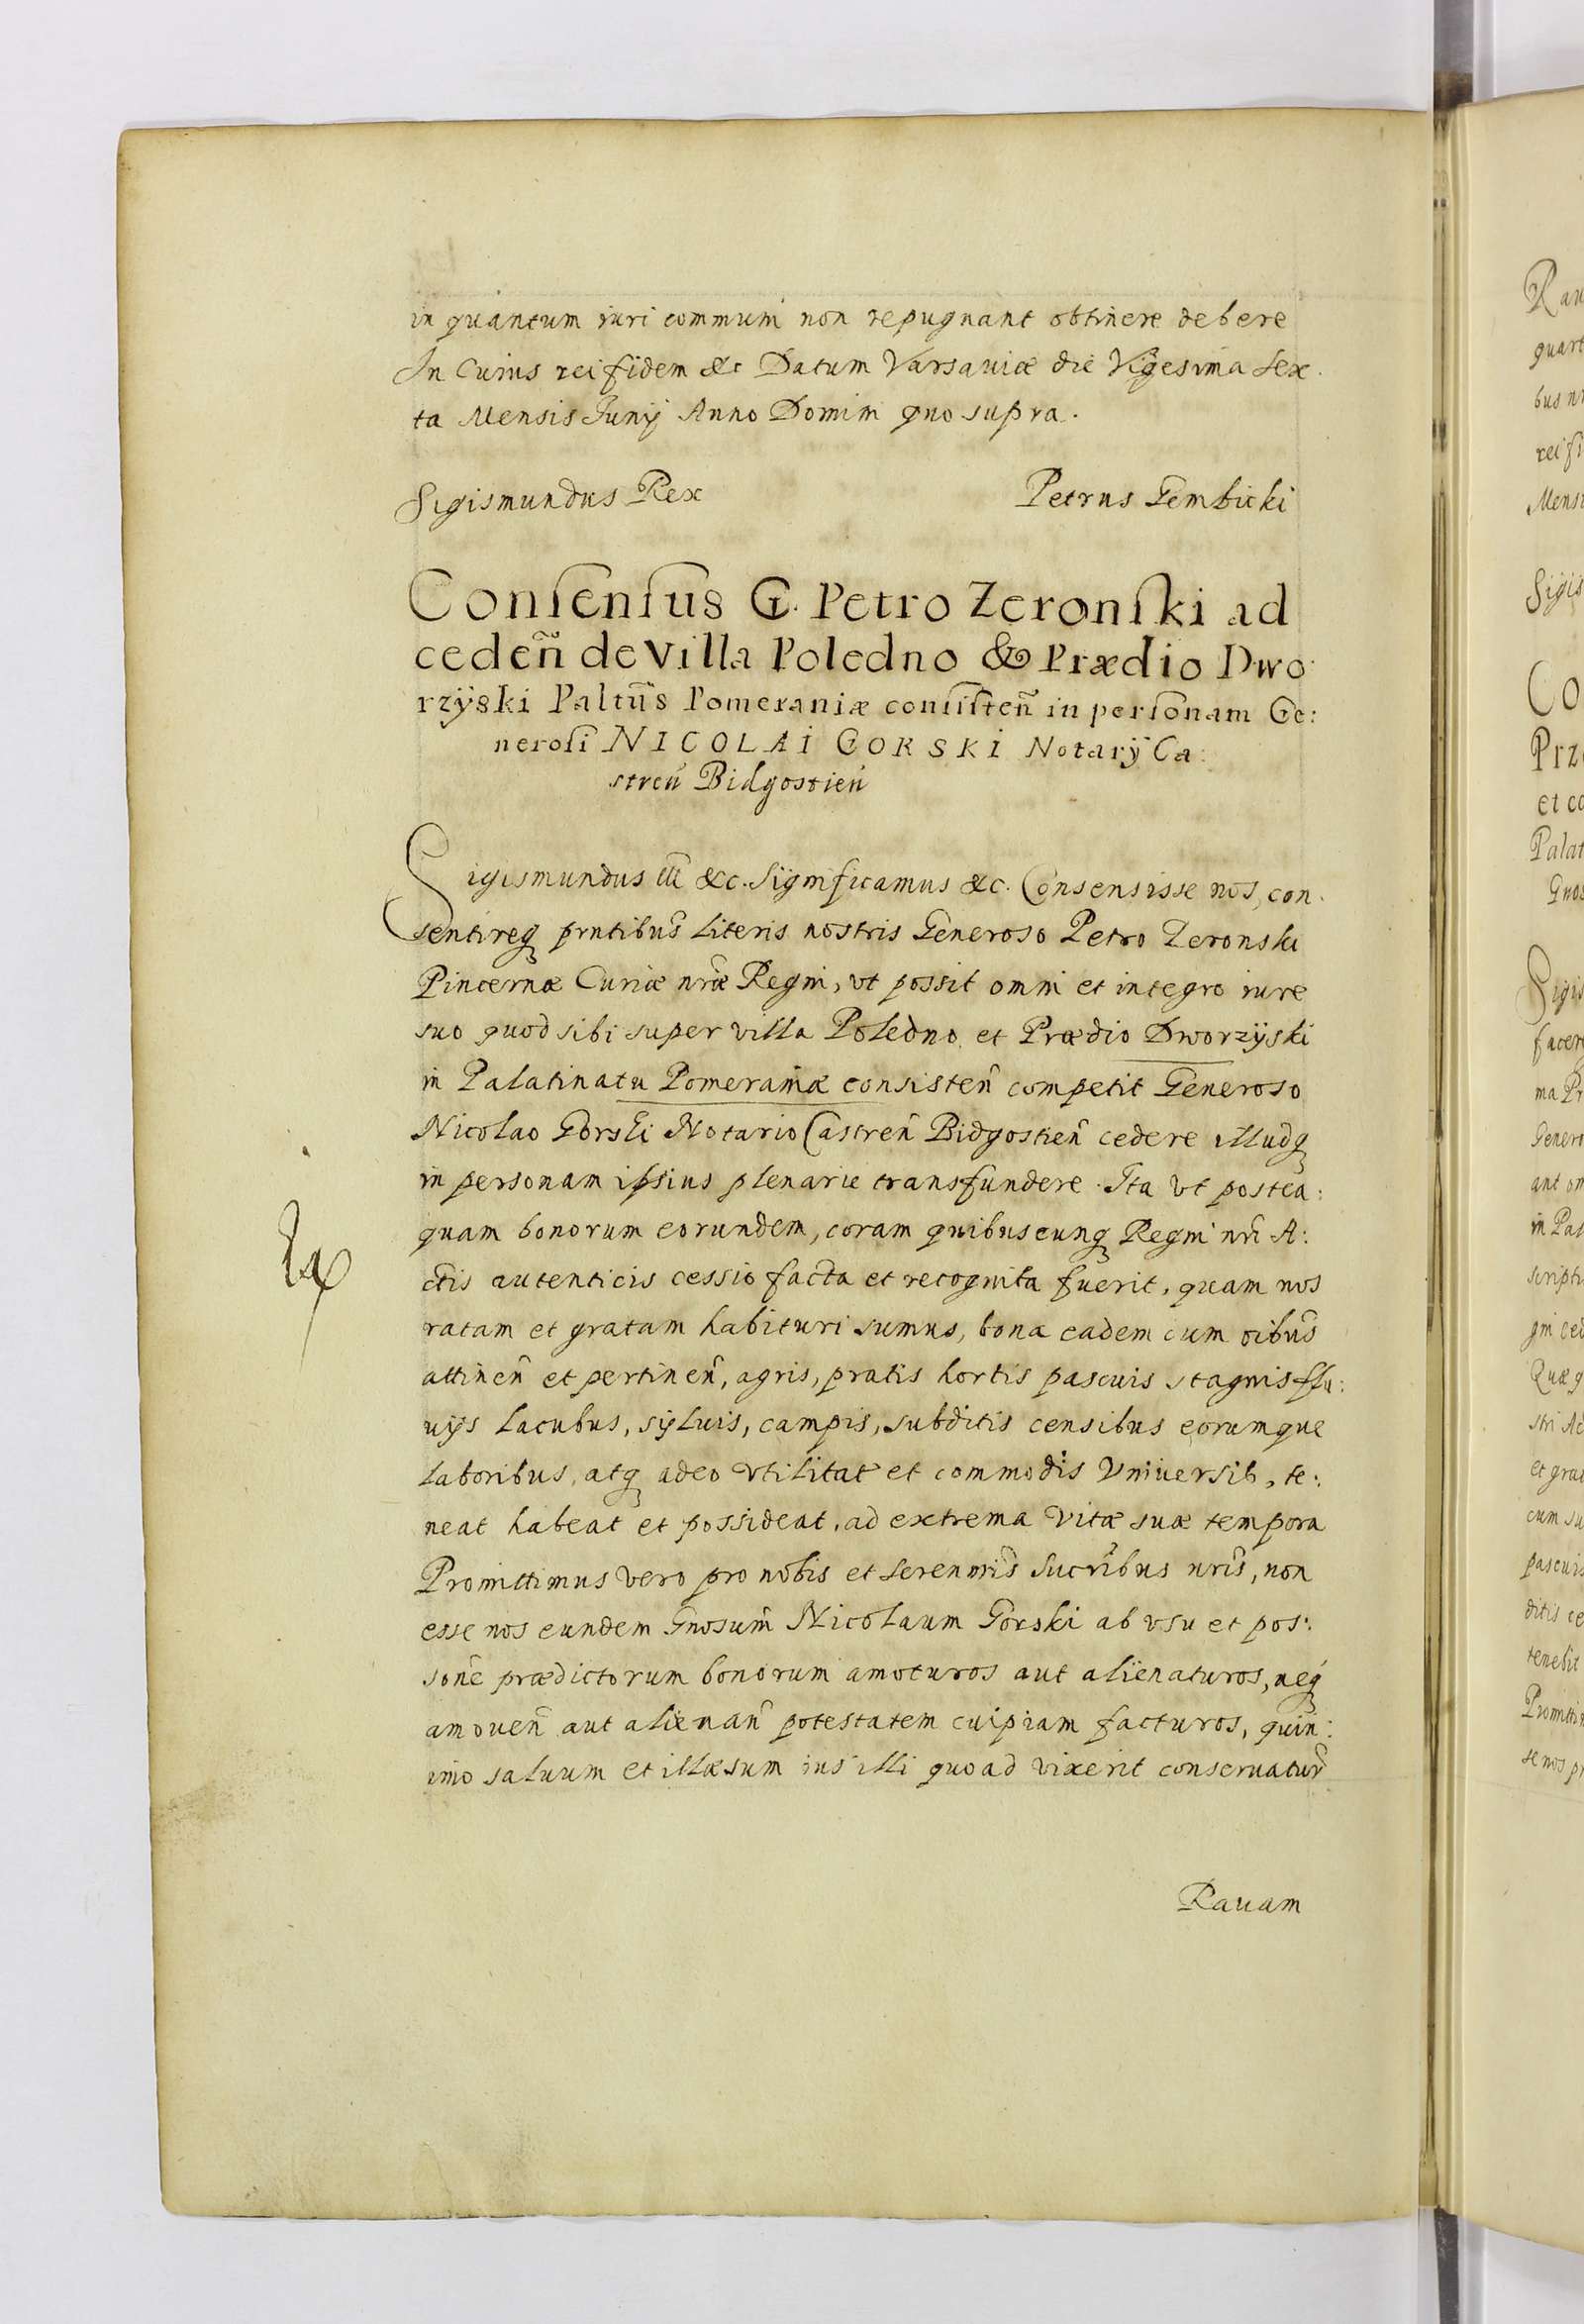 in quantum iuri communi non repugnant obtinere debere
In Cuius rei fidem &c Datum Varsauiæ die Vigesima sex.
ta Mensis Junij Anno Domini quo supra.
Sigismundus Rex Petrus Gembicki
Conſenſus G. Petro Zeronſki ad
cedeñ de Villa Poledno & Prædio Dwo
rzÿski Paltũs Pomeraniæ conſiſteñ in perſonam Ge:
neroſi NICOLAI GORSKI Notarÿ Ca:
streñ Bidgostieñ
Sigismundus III &c. Significamus &c. Consensisse nos, con.
sentireq prntibus literis nostris Generoso Petro Zeronski
Pincernæ Curiæ nræ Regni, vt possit omni et integro iure
suo quod sibi super villa Poledno et Prædio Dworzÿski
in Palatinatu Pomeraniæ consisteñ competit Generoso
Nicolao Gorski Notario Castreñ Bidgostieñ cedere illudq
in personam ipsius plenarie transfundere. Ita vt postea:
quam bonorum eorundem, coram quibuscunq Regni nri A:
ctis autenticis cessio facta et recognita fuerit, quam nos
ratam et gratam habituri sumus, bona eadem cum oibus
attineñ et pertineñ, agris, pratis hortis pascuis stagnis flu:
uijs lacubus, sÿluis, campis, subditis censibus eorumque
laboribus, atq adeo vtilitat et commodis Vniuersis, te:
neat habeat et possideat, ad extrema vitæ suæ tempora
Promittimus vero pro nobis et serenmis Sucribus nris, non
esse nos eundem Gnosum Nicolaum Gorski ab vsu et pos:
sone prædictorum bonorum amoturos aut alienaturos, neq
amoueñ aut alienañ potestatem cuipiam facturos, quin:
imo saluum et illæsum ius illi quoad vixerit conseruatur
Rauam